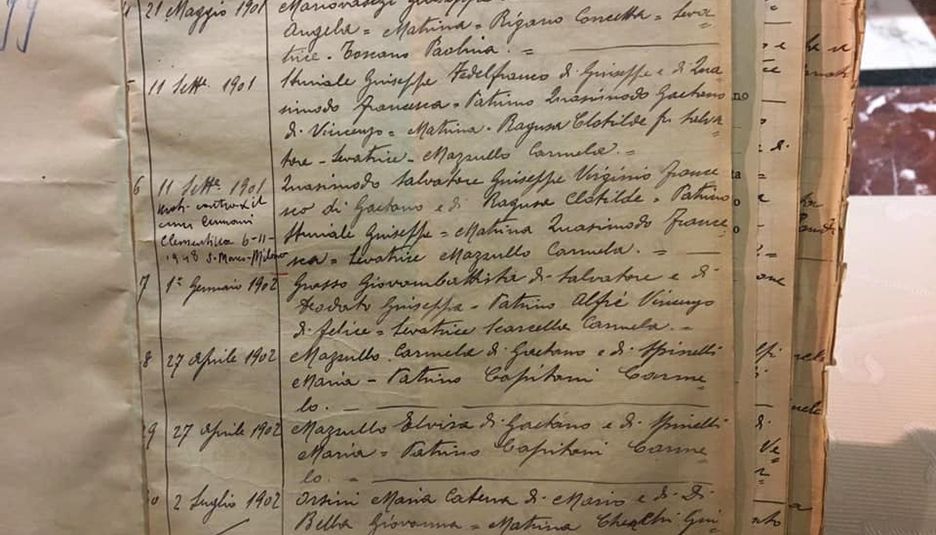 21 Maggio 1901
Angela = Matrina = Rigano Concetta = Leva
trice = Toscano Paolina. =
11 Sett.e 1901
Sturiale Giuseppe Adelfranco di Giuseppe e di Qua
simodo Francesca = Patrino Quasimodo Gaetano
di Vincenzo = Matrina = Ragusa Clotilde fu Salva
tore = Levatrice = Mazzullo Carmela. =
6 11 Sett.e 1901
Quasimodo Salvatore Giuseppe Virginio France
sco di Gaetano e di Ragusa Clotilde = Patrino
Sturiale Giuseppe = Matrina Quasimodo France
sca = Levatrice Mazzullo Carmela. =
Cumani
6-11-
1948 S. Marco - Milano
7 1° Gennaio 1902
Grasso Giovambattista di Salvatore e di
Deodato Giuseppa = Patrino Alfié Vincenzo
di Felice = Levatrice Scarcella Carmela. =
8 27 Aprile 1902
Mazzullo Carmela di Gaetano e di Spinelli
Maria = Patrino Capitani Carme
lo. =
9 27 Aprile 1902
Mazzullo Elvira di Gaetano e di Spinelli
Maria = Patrino Capitani Carme
lo. =
2 Luglio 1902
Orsini Maria Catena di Mario e di Di
Bella Giovanna = Matrina